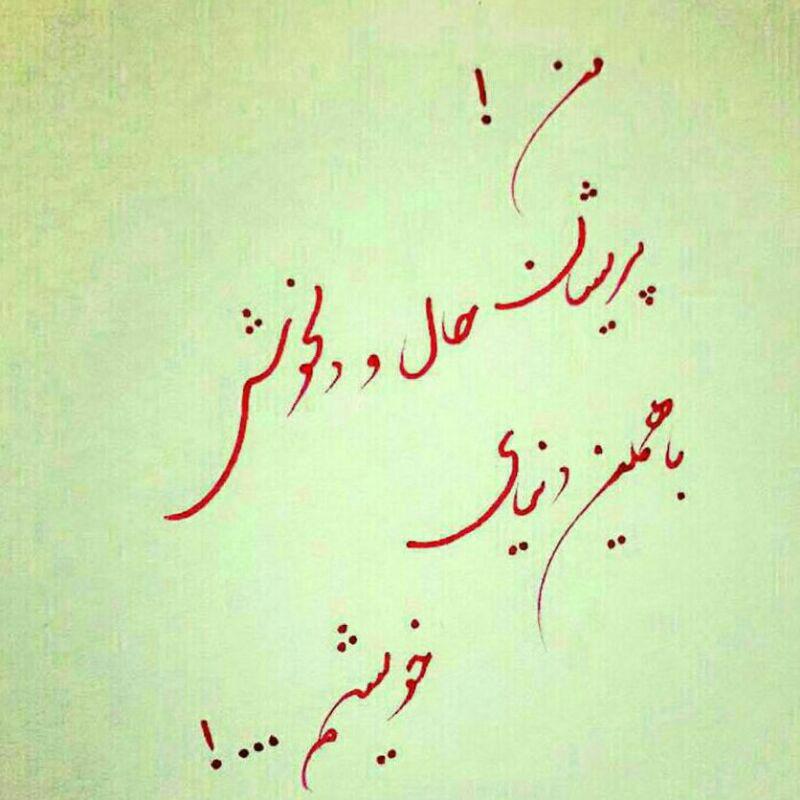 من !
پریشان حال و دلخوش
با همین دنیای
خویشم ...!